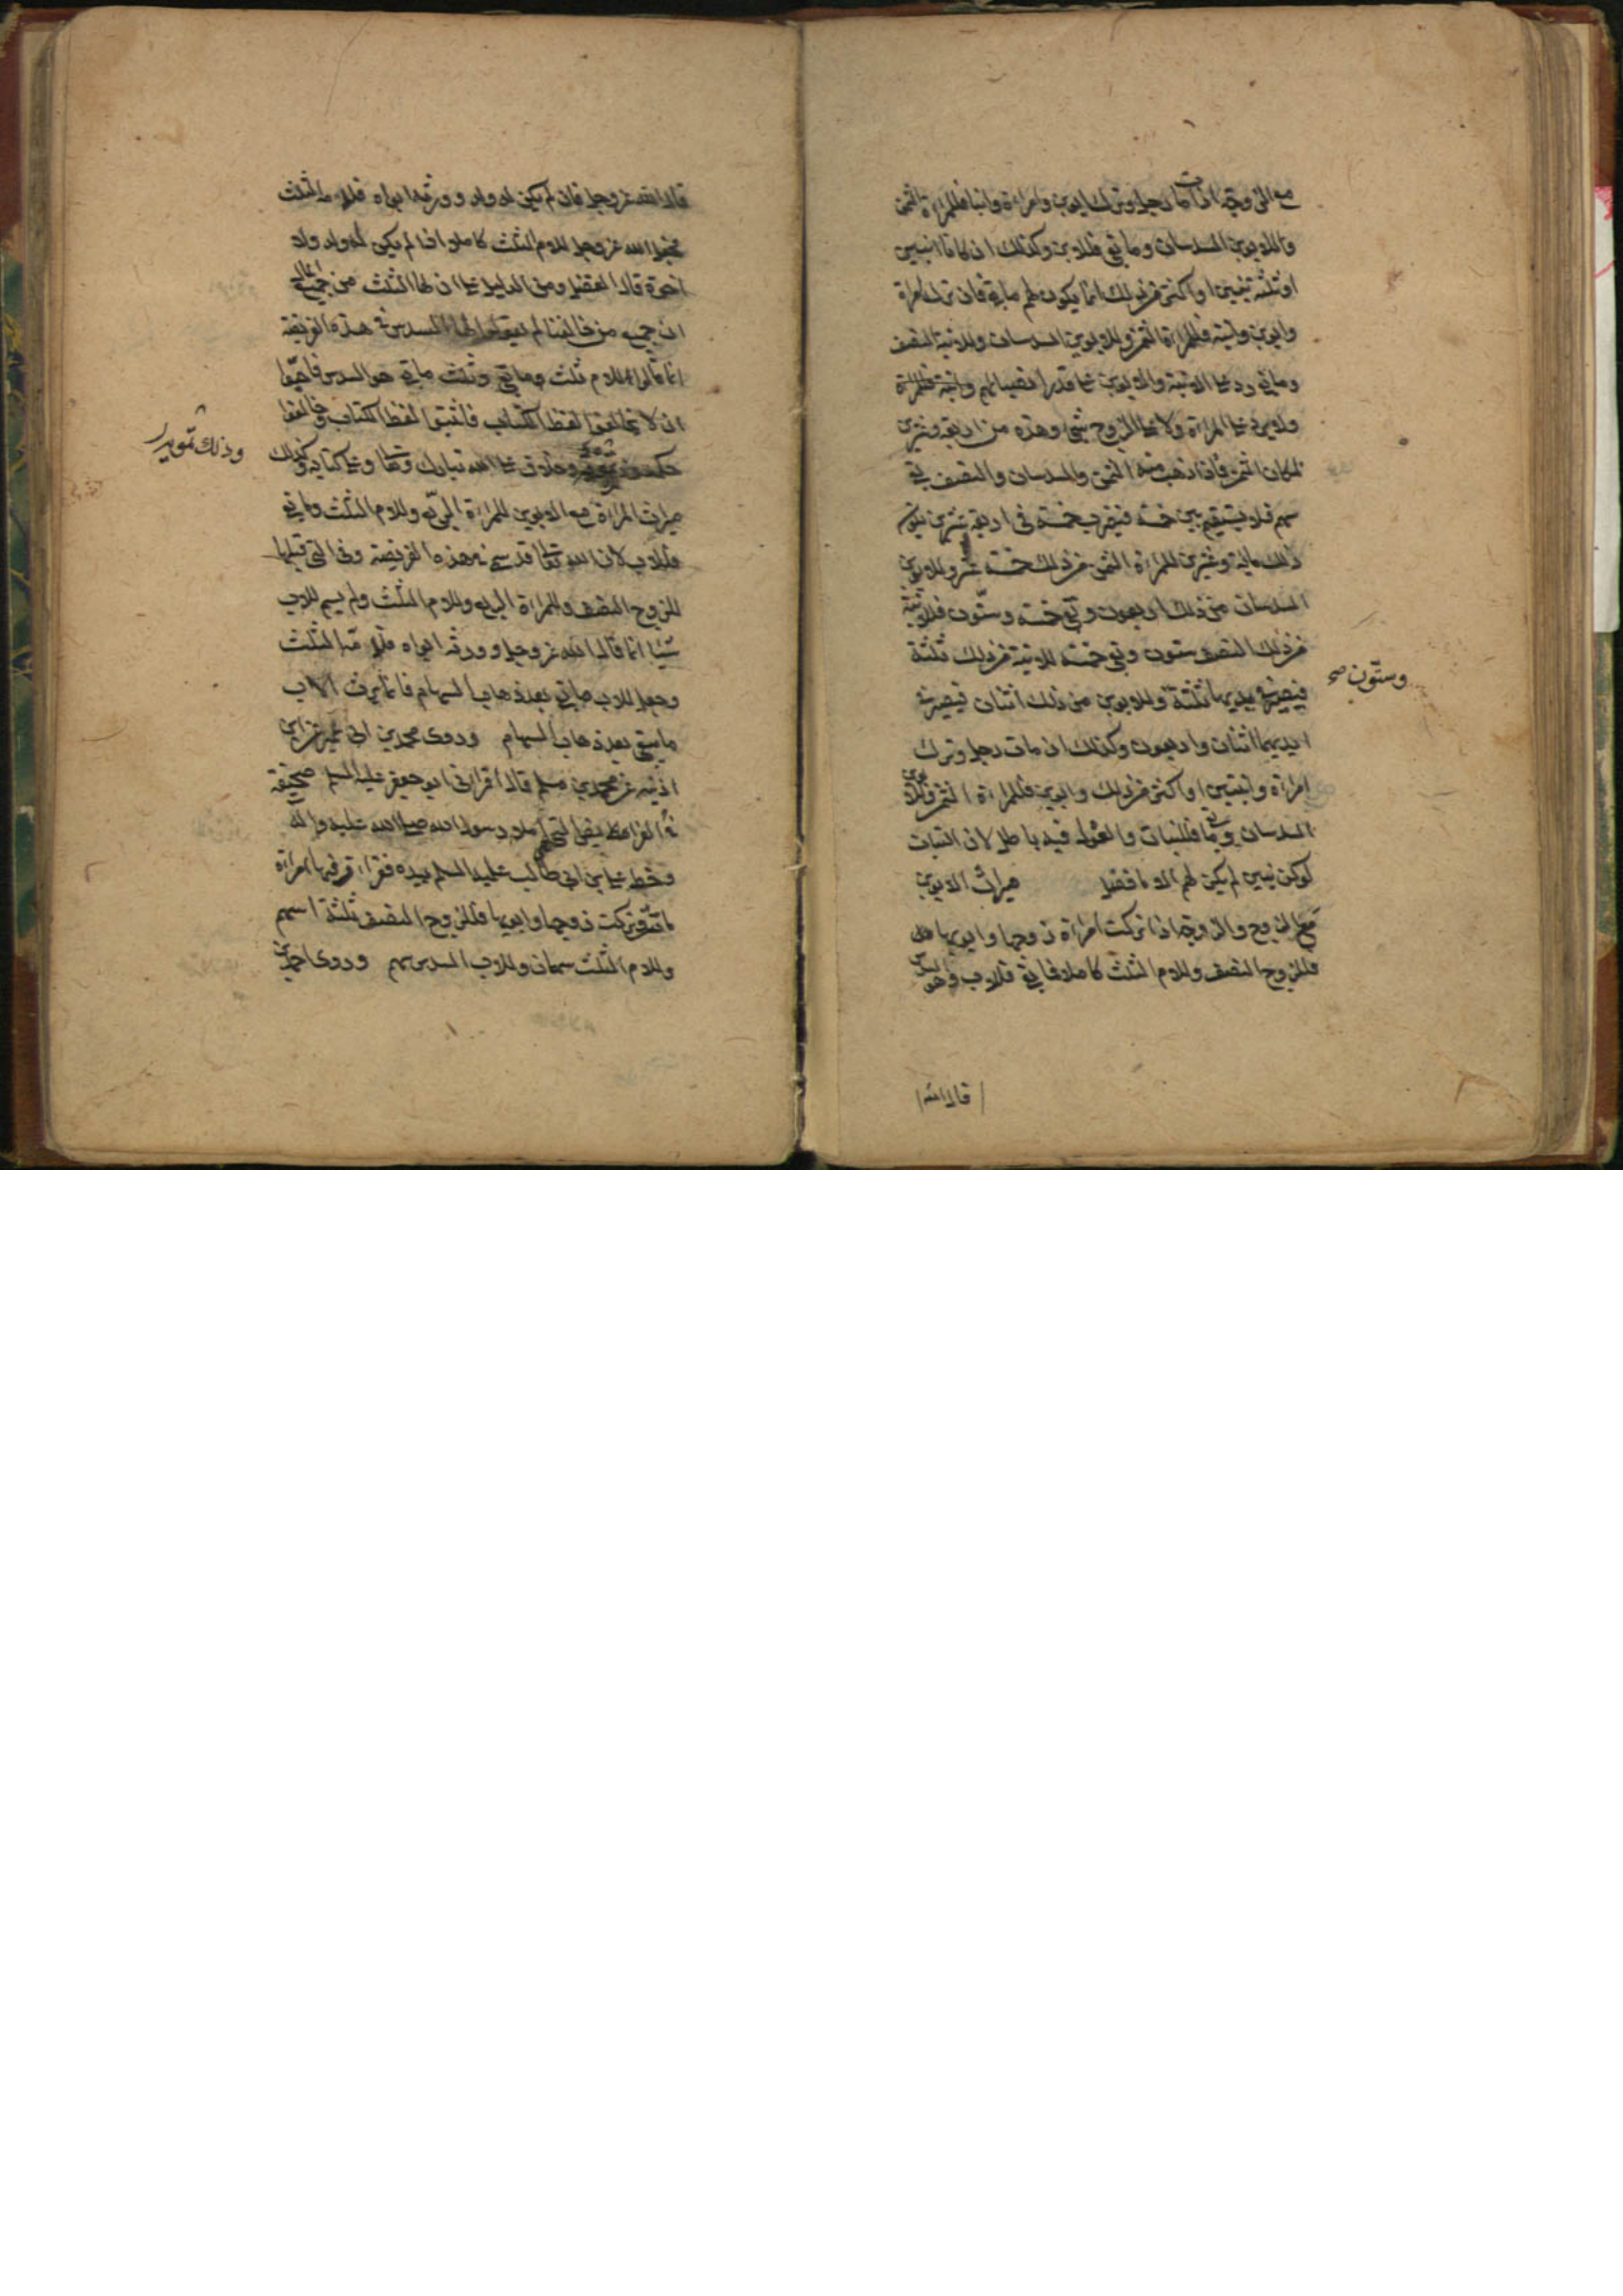 مع الزوجة اذا مات رجل وترك ابوين وامراة وابنا فللمراة الثمن
وللابوين السدسان وما بقى فللابن وكذلك ان كانا ابنين
او ثلثة بنين او اكثر من ذلك انما يكون لهم ما بقى فان ترك امراة
وابوين وابنة فللمراة الثمن وللابوين السدسان وللابنة النصف
وما بقى رد على الابنة والابوين على قدر انصبائهم
ولا يرد على المراة ولا على الزوج شئ وهذه من اربعة وعشرين
لمكان الثمن فاذا ذهب منه الثمن والسدسان والنصف بقى
سهم فلا يستقيم بين خمسة فيضرب خمسة فى اربعة وعشرين فيكون
ذلك ماية وعشرين للمراة الثمن من ذلك خمسة عشر وللابوين
السدسان من ذلك اربعون وبقى خمسة وستون فللابنة
من ذلك النصف ستون وبقى خمسة للابنة من ذلك ثلثة
فيصير فى يديها ثلثة وللابوين من ذلك اثنان فيصير فى
وستون صح
ايديهما اثنان واربعون وكذلك ان مات رجل وترك
امراة وابنتين او اكثر من ذلك وابوين فللمراة الثمن وللابوين
السدسان وما بقى فللبنات والعول فيه باطل لان البنات
لو كن بنين لم يكن لهم الا ما فضل ميراث الابوين
مع الزوج والزوجة اذا تركت امراة زوجها وابويها
فللزوج النصف وللام الثلث كاملا وما بقى فللاب وهو السدس
قال الله
قال الله عز وجل فان لم يكن له ولد وورثه ابواه فلامه الثلث
فجعل الله عز وجل للام الثلث كاملا اذا لم يكن له ولد ولا
اخوة قال الفضل ومن الدليل على ان لها الثلث من جميع المال
ان جميع من خالفنا لم يقولوا لها السدس فى هذه الفريضة
انما قالوا للام ثلث ما بقى وثلث ما بقى هو السدس فاحبوا
ان لا يخالفوا لفظ الكتاب فاثبتوا لفظ الكتاب وخالفوا
حكمه وخلاف على الله تبارك وتعالى وعلى كتابه وكذلك
وذلك تمويه
ميراث المراة مع الابوين للمراة الربع وللام الثلث وما بقى
فللاب لان الله تعالى قد سمى فى هذه الفريضة وفى التى قبلها
للزوج النصف وللمراة الربع وللام الثلث ولم يسم للاب
شيئا انما قال الله عز وجل وورثه ابواه فلامه الثلث
وجعل للاب ما بقى بعد ذهاب السهام فانما يرث الاب
ما يبقى بعد ذهاب السهام وروى محمد بن ابى عمير عن ابن
اذينه عن محمد بن مسلم قال اقرانى ابو جعفر عليه السلم صحيفة
الفرايض التى املا رسول الله صلى الله عليه واله
وخط على بن ابى طالب عليه السلم بيده فقرات فيها امراة
ماتت وتركت زوجها وابويها فللزوج النصف ثلثة اسهم
وللام الثلث سهمان وللاب السدس سهم وروى احمد بن